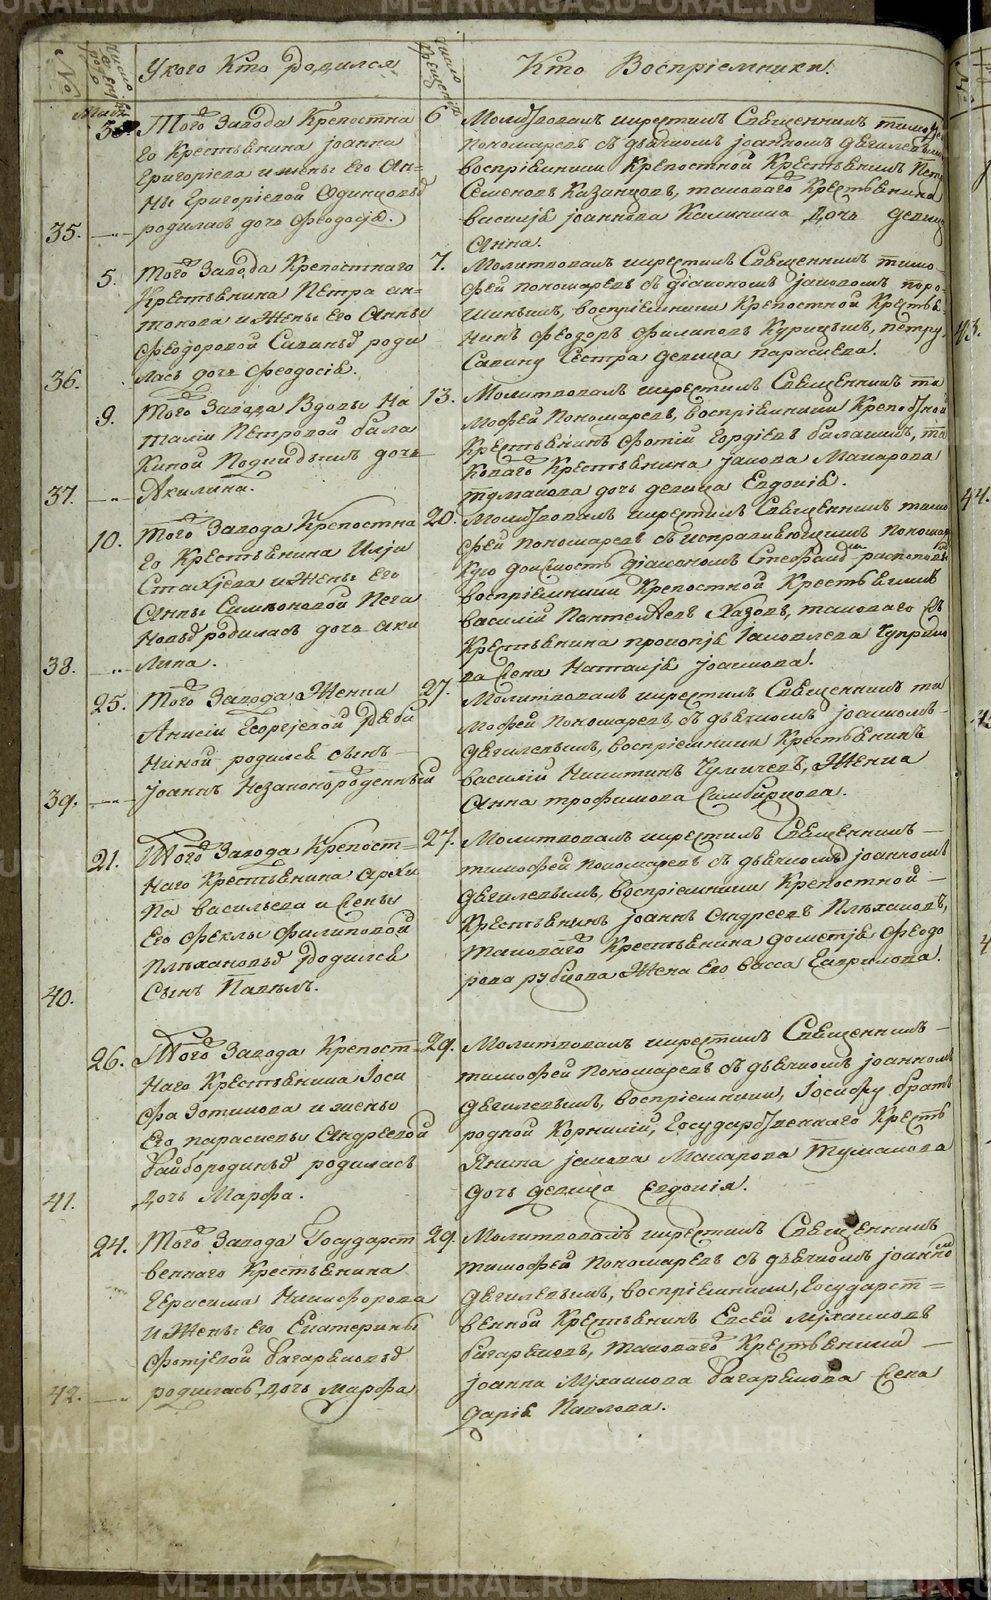 №
Число рождения
У кого кто родился
Число крещения
Кто восприемники.
Маия
35.
Того завода крепостна
го крестьянина Іоанна
Григорiева и жены его Ан=
ны Григорiевой Одинцовых
родилась дочь Феодосiя.
6
Молитвовалъ и крестилъ священникъ Тимофей
Пономаревъ съ дьячкомъ Iоанномъ Дягилевымъ
воспрiемники крепостной крестьянинъ Петръ
Семеновъ Казанцовъ, таковаго крестьянина
Василiя Iоаннова Калинина дочь девица
Анна.
36.
5.
Того завода крепостнаго
крестьянина Петра Ан=
тонова и жены его Анны
Феодоровой Савиных роди
лась дочь Феодосiя.
7.
Молитвовалъ и крестилъ священникъ Тимо
фей Пономаревъ съ дiакономъ Iаковомъ Горо
шинымъ, воспрiемники крепостной крестья=
нинъ Феодоръ Филиповъ Курицынъ, Петру
Савину сестра девица Парасиева.
37.
9.
Того завода вдовы На
талiи Петровой Бала
киной подкидышъ дочь
Акилина.
13.
Молитвовалъ и крестилъ священникъ Ти
мофей Пономаревъ, воспрiемники крепостной
крестьянинъ Фотiй Гордiевъ Балакинъ, та
коваго крестьянина Iакова Макарова
Туманова дочь девица Евдокiя.
38.
10.
Того завода крепостна
го крестьянина Илiи
Стахiева и жены его
Анны Симеоновой Пега
новых родилась дочь Аки
лина.
20.
Молитвовалъ и крестилъ священникъ Тимо
фей Пономаревъ съ исправляющимъ пономар
скую должность дiакономъ Стефаномъ
воспрiемники крепостной крестьянинъ
Василiй Пантелеевъ Хазовъ, таковаго
крестьянина Прокопiя Iаковлева Чуприко
ва жена Наталiя Iоакимова.
39.
25.
Того завода женки
Анисiи Георгiевой Ряби
ниной родился сынъ
Iоаннъ незаконорожденный
27.
Молитвовалъ и крестилъ священникъ Ти
мофей Пономаревъ, съ дьячкомъ Iоанномъ
Дягилевымъ, воспрiемники крестьянинъ
Василiй Никитинъ Чумичевъ, женка
Анна Трофимова Симбирцова.
40.
21.
Того завода крепост=
наго крестьянина Архи
па Васильева и жены
его Феклы Филиповой
Плехановых родился
сынъ Павелъ.
27.
Молитвовалъ и крестилъ священникъ
Тимофей Пономаревъ съ дьячкомъ Iоанномъ
Дягилевымъ, воспрiемники крепостной
крестьянинъ Iоаннъ Андреевъ Плехановъ,
таковаго крестьянина Дометiя Феодо
рова Рубцова жена его Васса Гаврилова.
41.
26.
Того завода крепост=
наго крестьянина Iоси
фа Зотикова и жены
его Парасиевы Андреевой
Байбородиных родилась
дочь Марфа.
29.
Молитвовалъ и крестилъ священникъ
Тимофей Пономаревъ съ дьячкомъ Iоанномъ
Дягилевымъ, воспрiемники, Iосифу братъ
родной Корнилiй, государственнаго кресть
янина Iакова Макарова Туманова
дочь девица Евдокiя.
42.
24.
Того завода государст
веннаго крестьянина
Герасима Никифорова
и жены его Екатерины
Фотiевой Багаряковых
родилась дочь Марфа
29.
Молитвовалъ и крестилъ священникъ
Тимофей Пономаревъ съ дьячкомъ Iоанномъ
Дягилевымъ, воспрiемники, государст=
венной крестьянинъ Евсей Михаиловъ
Багаряковъ, таковаго крестьянина
Iоанна Михаилова Багарякова жена
Дарiя Павлова.
METRIKI.GASO-URAL.RU